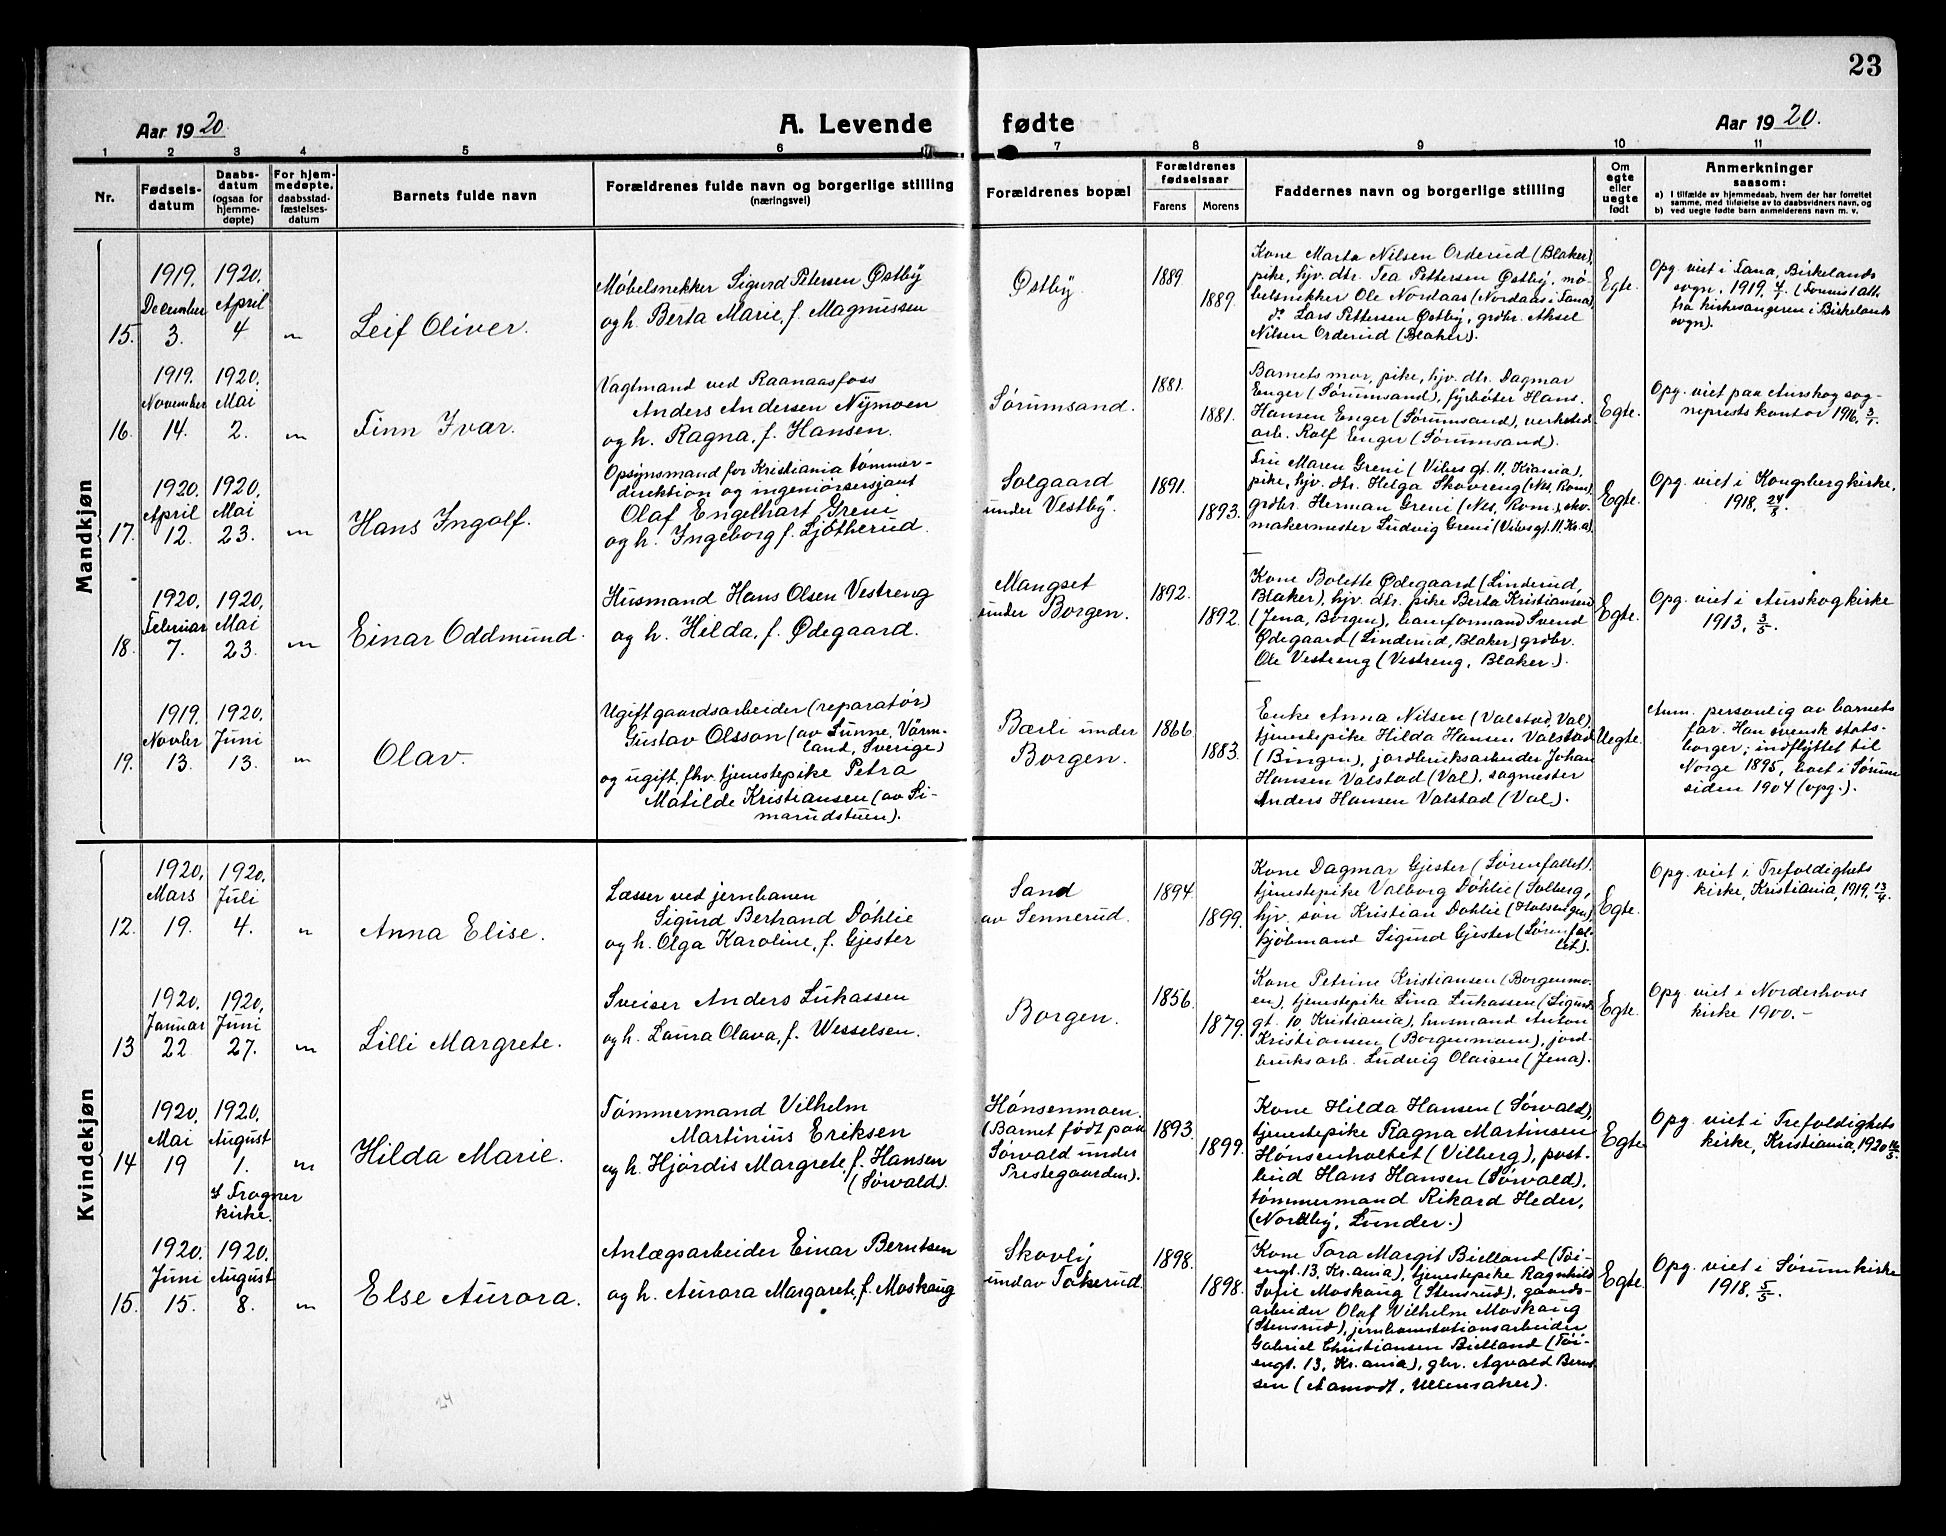 23
Aar 1920.
A. Levende fødte
Aar 1920.
1 2 3 4 5 6 7 8 9 10 11
Nr.
Fødsels-
datum
Daabs-
datum
(ogsaa for
hjemme-
døpte)
For hjem-
medøpte,
daabsstad-
fæstelses-
datum
Barnets fulde navn
Forældrenes fulde navn og borgerlige stilling
(næringsvei)
Forældrenes bopæl
Forældrenes
fødselsaar
Farens
Morens
Faddernes navn og borgerlige stilling
Om
egte
eller
uegte
født
Anmerkninger
saasom:
a) I tilfælde av hjemmedaab, hvem der har forrettet
samme, med tilføielse av to daabsvidners navn, og
b) ved uegte fødte barn anmelderens navn m. v.
Mandkjøn
15.
1919.
December
3.
1920.
April
4
"
Leif Oliver.
Møbelsnekker Sigurd Petersen Østby
og h. Berta Marie, f. Magnussen
Østby.
1889
1889.
Kone Marta Nilsen Orderud (Blaker),
pike, hjv. dtr. Tea Pettersen Østby, mø-
belsnekker Ole Nordaas (Nordaas i Fana),
do Lars Pettersen Østby, grdbr. Aksel
Nilsen Orderud (Blaker).
Egte.
Opg. viet i Fana, Birkelands
sogn, 1919,
fra kirkesangeren i Birkeland
sogn).
16.
1919.
November
14.
1920.
Mai
2.
"
Finn Ivar.
Vagtmand ved Raanaasfoss
Anders Andersen Nymoen
og h. Ragna, f. Hansen.
Sørumsand.
1881.
1881.
Barnets mor, pike, hjv. dtr. Dagmar
Enger (Sørumsand), fyrbøter Hans
Hansen Enger (Sørumsand), verksted-
arb. Rolf Enger (Sørumsand).
Egte.
Opg. viet paa Aurskog sog-
neprests kontor 1916, 3/1.
17.
1920.
April
12.
1920.
Mai
23.
"
Hans Ingolf.
Opsynsmand for Kristiania tømmer-
direktion og ingeniørsersjant
Olaf Engelhart Greni
og h. Ingeborg f. Sjøtherud.
Solgaard
under Vestby.
1891.
1893.
Fru Maren Greni (Vibes gt. 11, Kr.ania),
pike, hjv. dtr. Helga Skovreng (Nes, Rom.),
grdbr. Herman Greni (Nes, Rom.), sko-
makermester Ludvig Greni (Vibes gt. 11. Kr.a).
Egte.
Opg. viet i Kongsberg kirke,
1918,
18.
1920.
Februar
7.
1920.
Mai
23.
"
Einar Oddmund.
Husmand Hans Olsen Vestreng
og h. Helda, f. Ødegaard.
Mangset
under Borgen.
1892.
1892.
Kone Bolette Ødegaard (Linderud,
Blaker), hjv. dtr. pike Berta Kristiansen
(Jena, Borgen), baneformand Svend
Ødegaard (Linderud, Blaker) grdbr.
Ole Vestreng (Vestreng, Blaker.).
Egte.
Opg. viet i Aurskog kirke
1913, 3/5.
19.
1919.
Novbr
13.
1920.
Juni
13.
"
Olav.
Ugift gaardsarbeider (reparatør)
Gustav Olsson (av Sunne, Värm-
land, Sverige)
og ugift, fhv. tjenestepike Petra
Matilde Kristiansen (av Si-
marudstuen).
Bærli under
Borgen.
1866.
1883.
Enke Anna Nilsen (Valstad, Val),
tjenestepike Hilda Hansen Valstad
(Bingen), jordbruksarbeider Johan
Hansen Valstad (Val), sagmester
Anders Hansen Valstad (Val).
Uegte.
Anm. personlig av barnets
far. Han svensk stats-
borger; indflyttet til
Norge 1895, boet i Sørum
siden 1904 (opg.).
Kvindekjøn
12.
1920.
Mars
19.
1920.
Juli
4.
"
Anna Elise.
Læsser ved jernbanen
Sigurd Bertrand Døhlie
og h. Olga Karoline, f. Gjester
Sand
av Sennerud.
1894.
1899.
Kone Dagmar Gjester (Sørenfallet),
tjenestepike Valborg Døhlie (Solberg,
hjv. søn Kristian Døhlie
kjøbmand Sigurd Gjester (Sørenfal-
let).
Egte.
Opg. viet i Trefoldighets
kirke, Kristiania, 1919, 13/4.
13
1920.
Januar
22
1920.
Juni
27.
"
Lilli Margrete.
Sveiser Anders Lukassen
og h. Laura Olava, f. Wesselsen.
Borgen.
1856.
1879.
Kone Petrine Kristiansen (Borgenmo-
en), tjenestepike Lina Lukassen (Sigurds
gt. 10, Kristiania), husmand Anton
Kristiansen (Borgenmoen), jord-
bruksarb. Ludvig Olaisen (Jena).
Egte.
Opg. viet i Norderhovs
kirke 1900. -
14
1920.
Mai
19
1920.
August
1.
I Frogner
kirke.
"
Hilda Marie.
Tømmermand Vilhelm
Martinius Eriksen
og h. Hjørdis Margrete, f. Hansen
(Sørvald).
Hønsenmoen.
(Barnet født paa
Sørvald under
Prestegaarden).
1893.
1899.
Kone Hilda Hansen (Sørvald),
tjenestepike Ragna Martinsen
Hønsenholtet (Vilberg), post-
bud Hans Hansen (Sørvald),
tømmermand Rikard Heder,
(Nordby, Lunder.)
Egte
Opg. viet i Trefoldighets
kirke, Kristiania, 1920
15.
1920.
Juni
15.
1920.
August
8.
"
Else Aurora.
Anlægsarbeider Einar Berntsen
og h. Aurora Margarete, f. Moskaug
Skovly
undav Tøkerud.
1898.
1898.
Kone Tora Margit Bielland (Tøi-
engt. 13, Kr.ania), tjenestepike Ragnhild
Sofie Moskaug (Stensrud), gaards-
arbeider Olaf Vilhelm Moskaug
(Stensrud), jernbanestationsarbeider
Gabriel Christiansen Bielland (Tøi-
engt. 13, Kr.ania), gbr. Agvald Bernt-
sen (Aamodt, Ullensaker).
Egte.
Opg. viet i Sørum kirke
1918, 5/5.
24